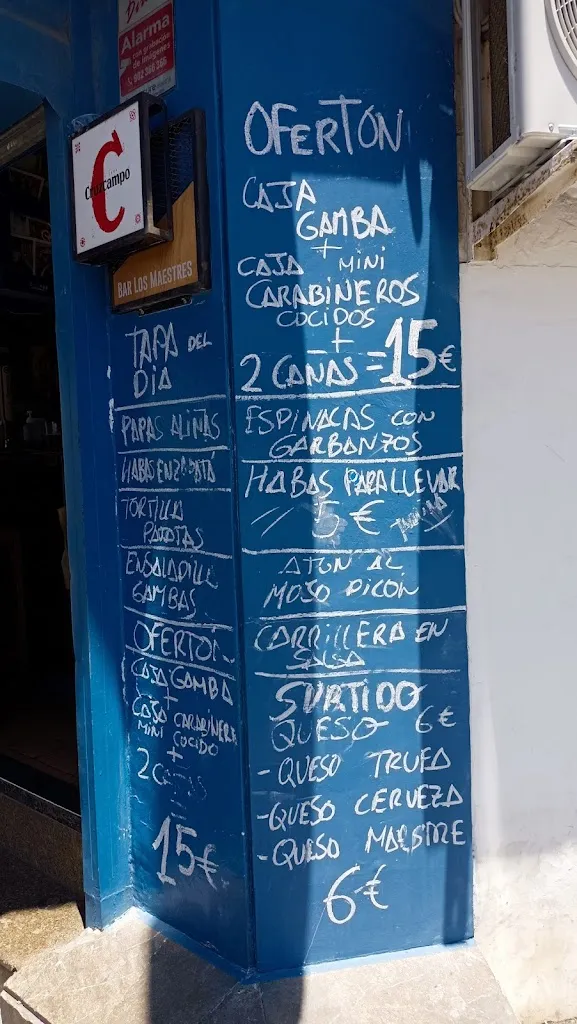 Alarma
con grabación
de imágenes
902 366 366
Cruzcampo
BAR LOS MAESTRES
TAPA DEL
DIA
PAPAS ALIÑAS
TORTILLA
PATATAS
ENSALADILLA
GAMBAS
OFERTÓN
CAJA GAMBA
+
CAJA CARABINERO
MINI COCIDO
+
=
15€
OFERTÓN
CAJA
GAMBA
+
CAJA MINI
CARABINEROS
COCIDOS
+
2 CAÑAS = 15€
ESPINACAS CON
GARBANZOS
HABAS PARA LLEVAR
5€
ATUN AL
MOJO PICÓN
CARRILLERA EN
SALSA
SURTIDO
QUESO 6€
- QUESO TRUFA
- QUESO CERVEZA
- QUESO
6€